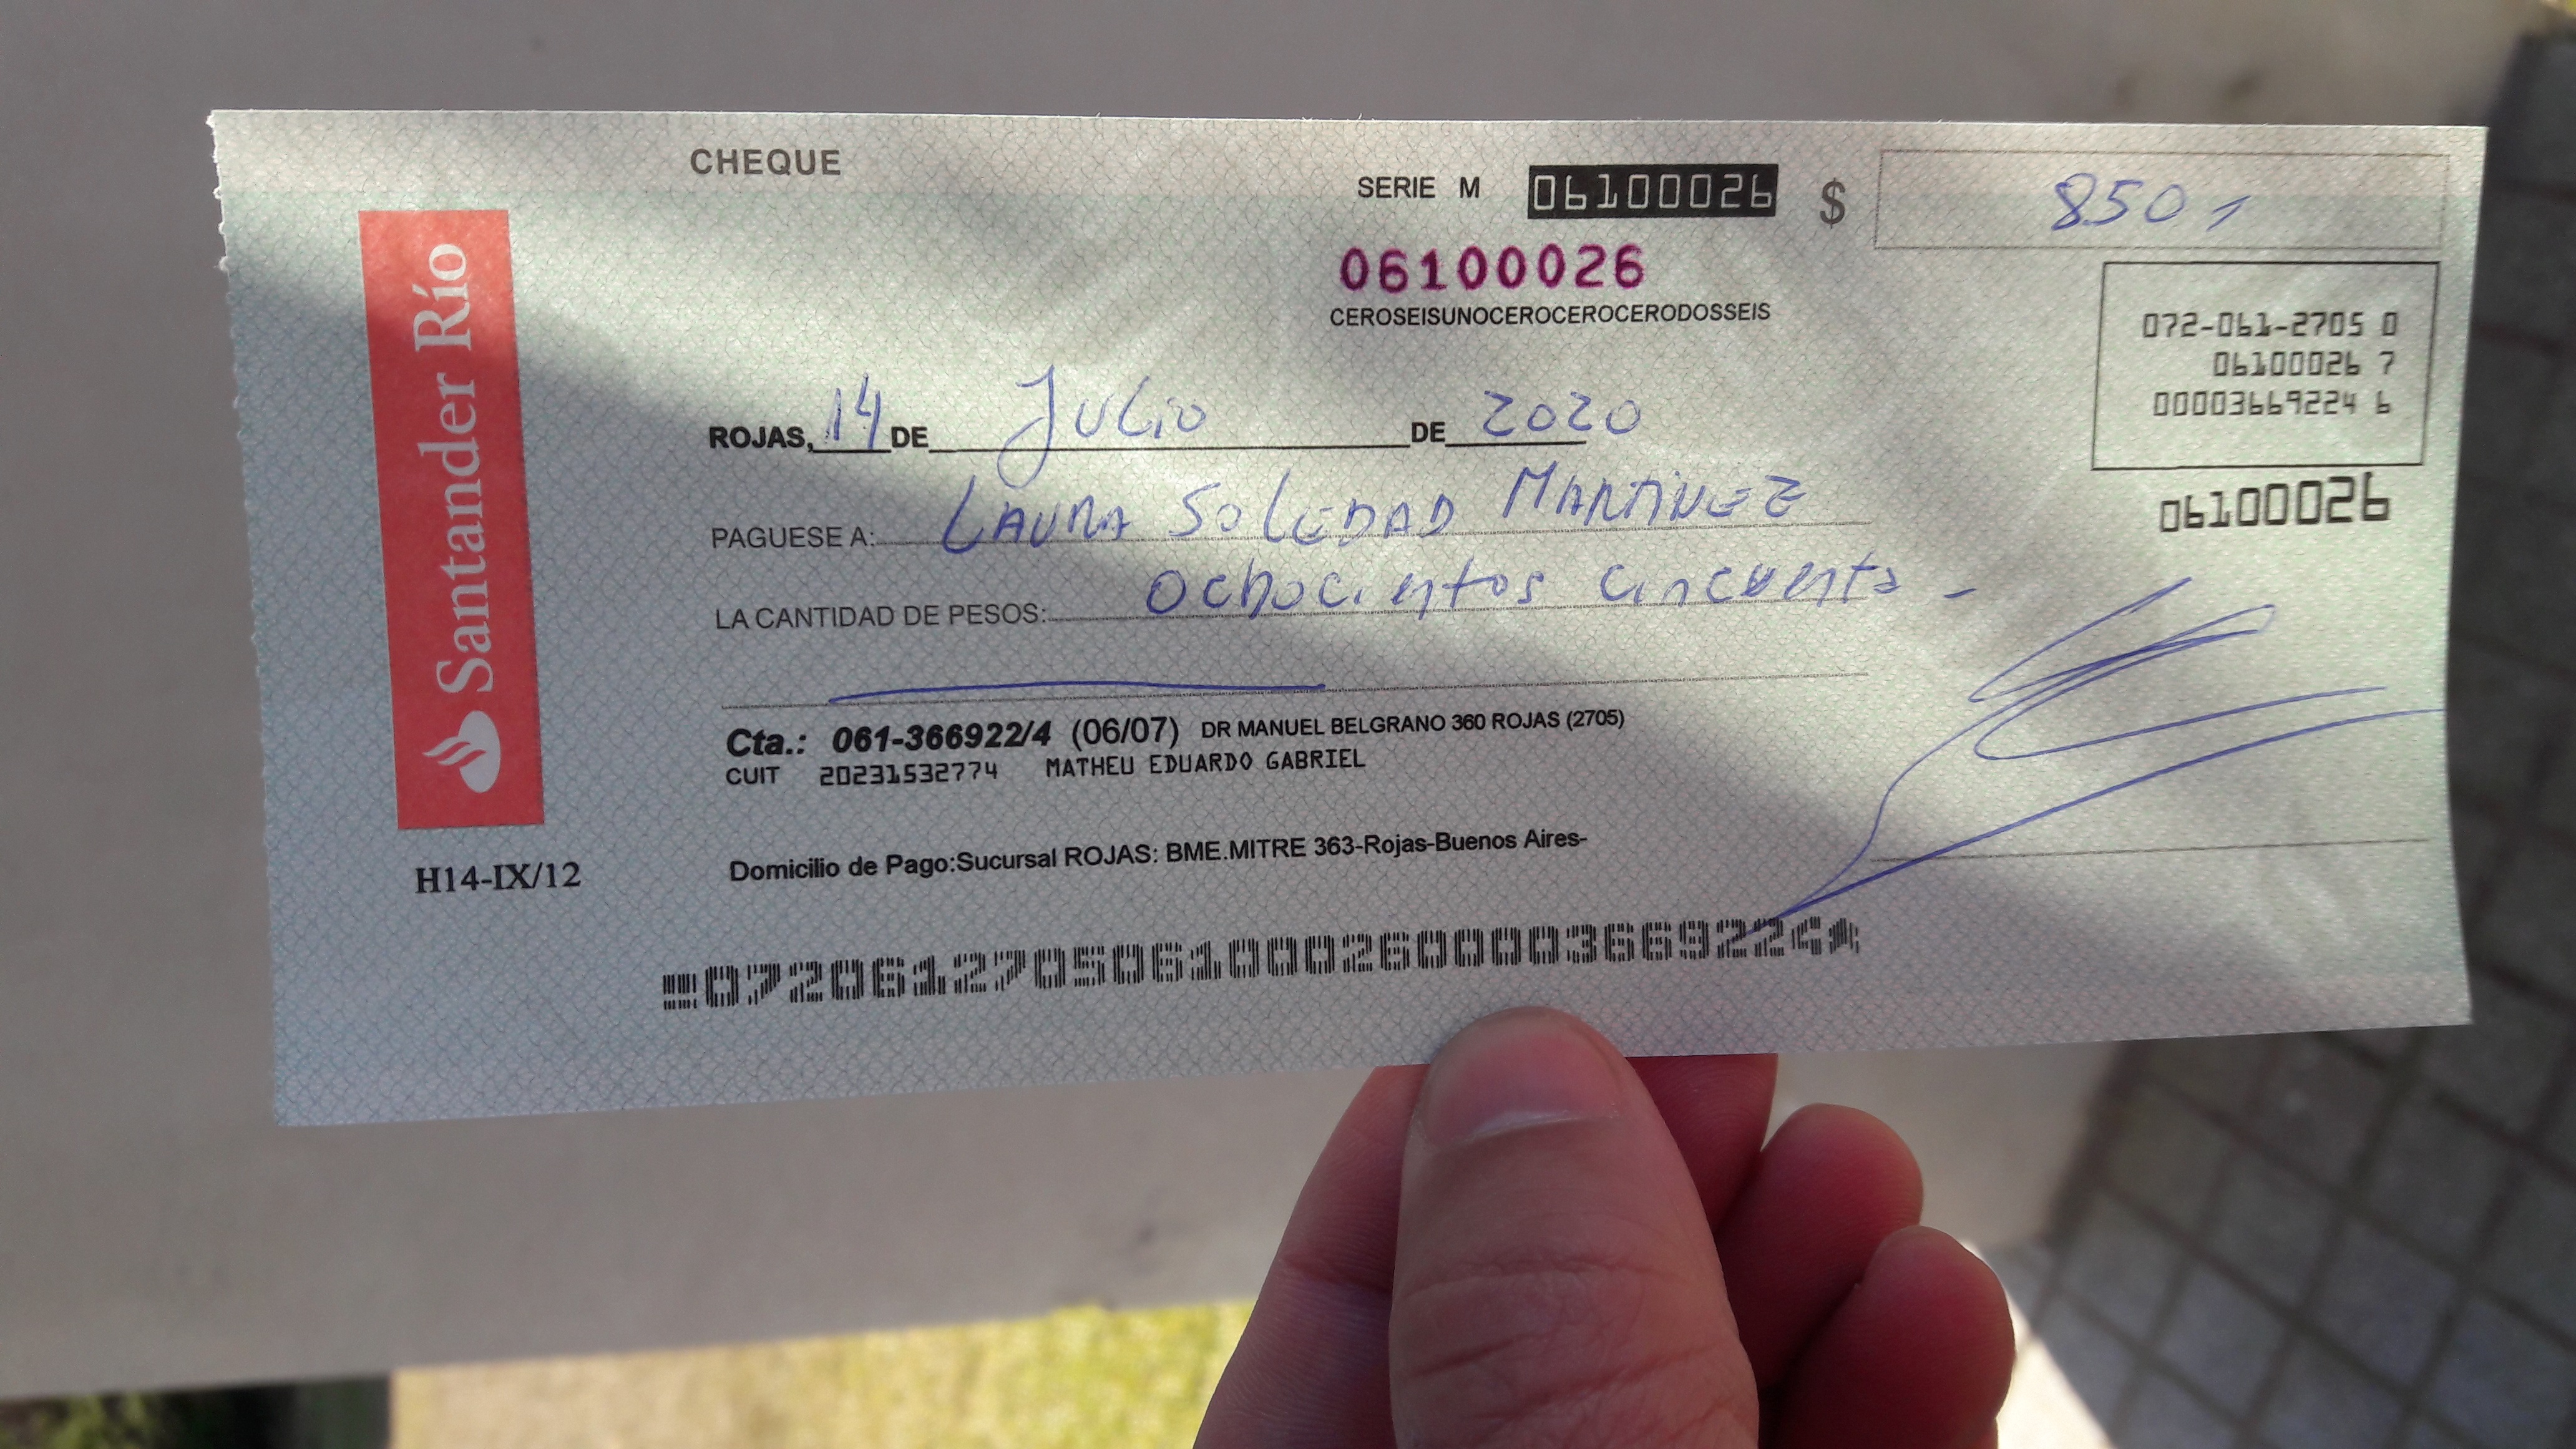 CHEQUE
SERIE M 06100026 $ 850,
06100026
CEROSEISUNOCEROCEROCERODOSSEIS
072-061-2705 0
06100026 7
00003669224 6
06100026
Santander Río
ROJAS, 14 DE Julio DE 2020
PAGUESE A: LAURA SOLEDAD MARTINEZ
LA CANTIDAD DE PESOS: Ochocientos cincuenta -
Cta.: 061-366922/4 (06/07) DR MANUEL BELGRANO 360 ROJAS (2705)
CUIT 20231532774 MATHEU EDUARDO GABRIEL
Domicilio de Pago:Sucursal ROJAS: BME.MITRE 363-Rojas-Buenos Aires-
H14-IX/12
07206127050610002600003669224